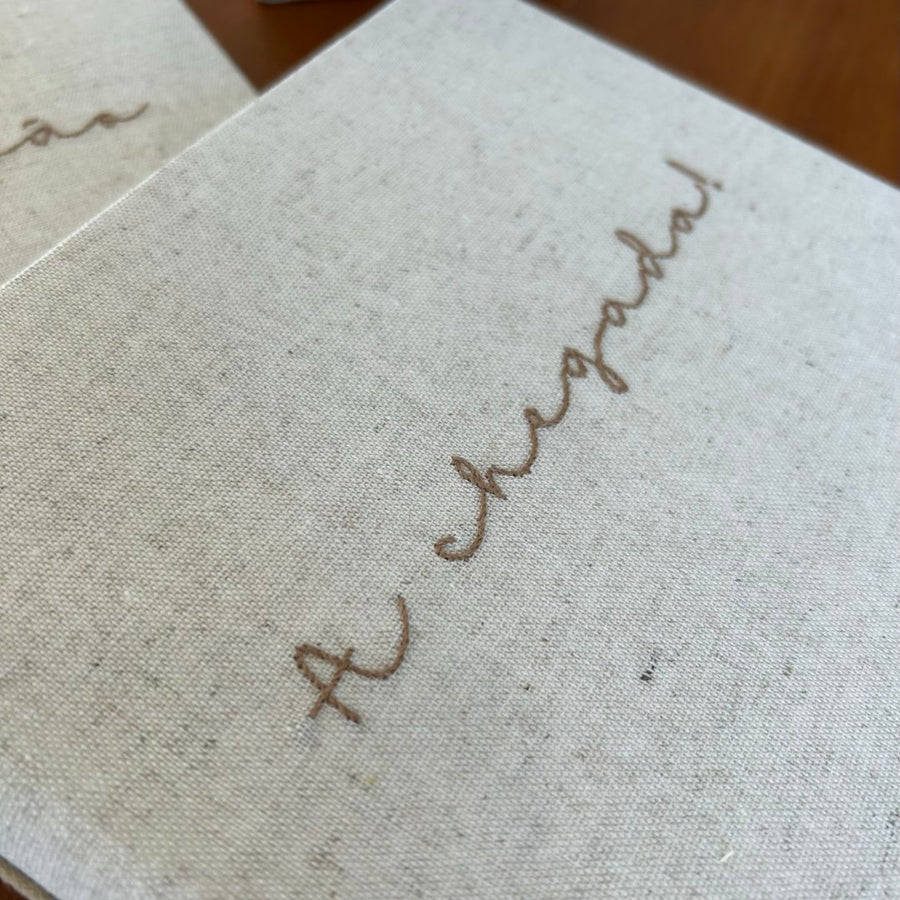 A chegada!